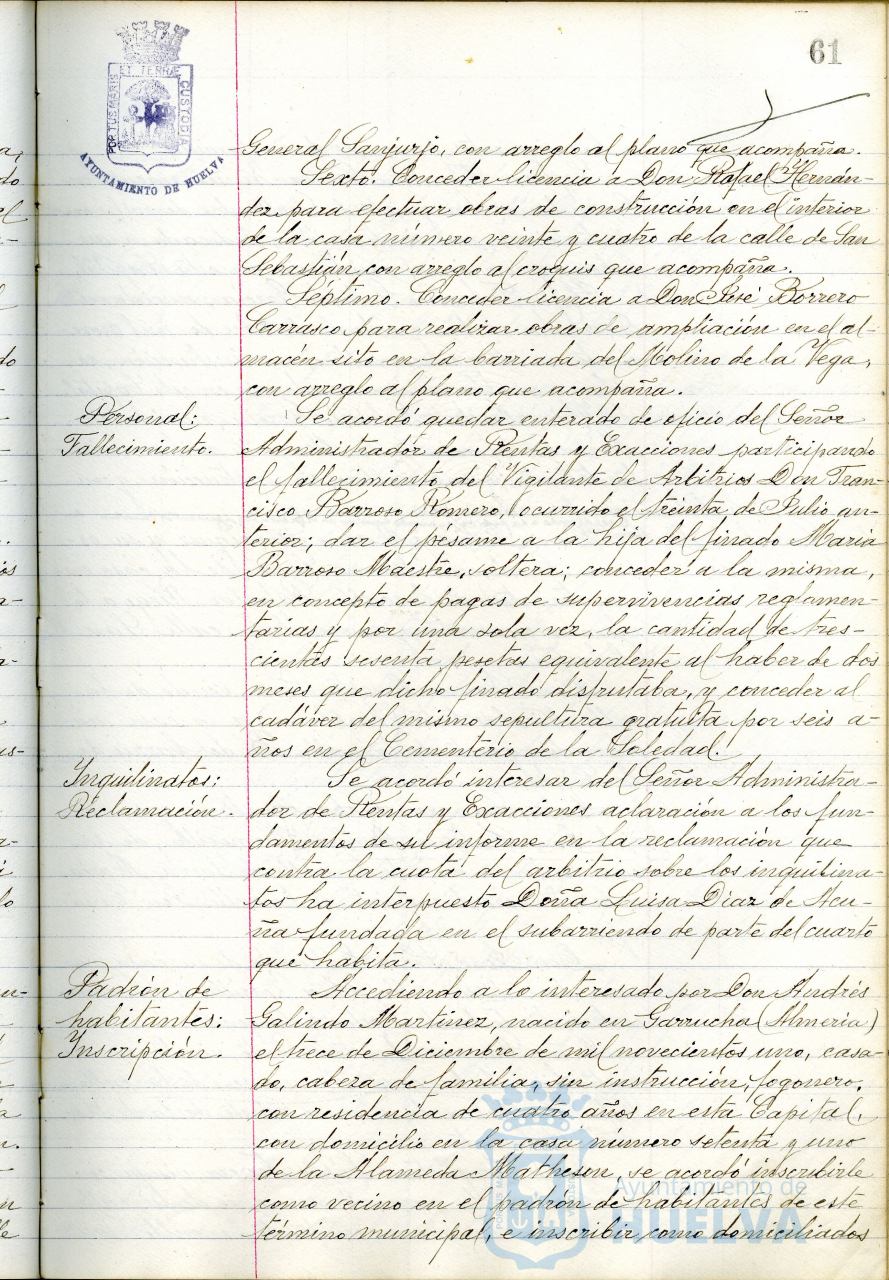 61
PORTUS MARIS ET TERRÆ CUSTODIA
AYUNTAMIENTO DE HUELVA
General Sanjurjo, con arreglo al plano que acompaña.
Sexto. Conceder licencia a Don Rafael Hernán-
dez para efectuar obras de construcción en el interior
de la casa número veinte y cuatro de la calle de San
Sebastián, con arreglo al croquis que acompaña.
Séptimo. Conceder licencia a Don José Borrero
Carrasco para realizar obras de ampliación en el al-
macén sito en la barriada del Molino de la Vega,
con arreglo al plano que acompaña.
Personal:
Fallecimiento.
Se acordó quedar enterado de oficio del Señor
Administrador de Rentas y Exacciones participando
el fallecimiento del Vigilante de Arbitrios Don Fran-
cisco Barroso Romero, ocurrido el treinta de Julio an-
terior; dar el pésame a la hija del finado Maria
Barroso Maestre, soltera; conceder a la misma,
en concepto de pagas de supervivencias reglamen-
tarias y por una sola vez, la cantidad de tres-
cientas sesenta pesetas equivalente al haber de dos
meses que dicho finado disfrutaba, y conceder al
cadáver del mismo sepultura gratuita por seis a-
ños en el Cementerio de la Soledad.
Inquilinatos:
Reclamación.
Se acordó interesar del Señor Administra-
dor de Rentas y Exacciones aclaración a los fun-
damentos de su informe en la reclamación que
contra la cuota del arbitrio sobre los inquilina-
tos ha interpuesto Doña Luisa Diaz de Acu-
ña fundada en el subarriendo de parte del cuarto
que habita.
Padrón de
habitantes:
Inscripción.
Accediendo a lo interesado por Don Andrés
Galindo Martinez, nacido en Garrucha (Almeria)
el trece de Diciembre de mil novecientos uno, casa-
do, cabeza de familia, sin instrucción, fogonero,
con residencia de cuatro años en esta Capital,
con domicilio en la casa número setenta y uno
de la Alameda Matheson, se acordó inscribirle
como vecino en el padrón de habitantes de este
término municipal, e inscribir como domiciliados
Ayuntamiento de
HUELVA